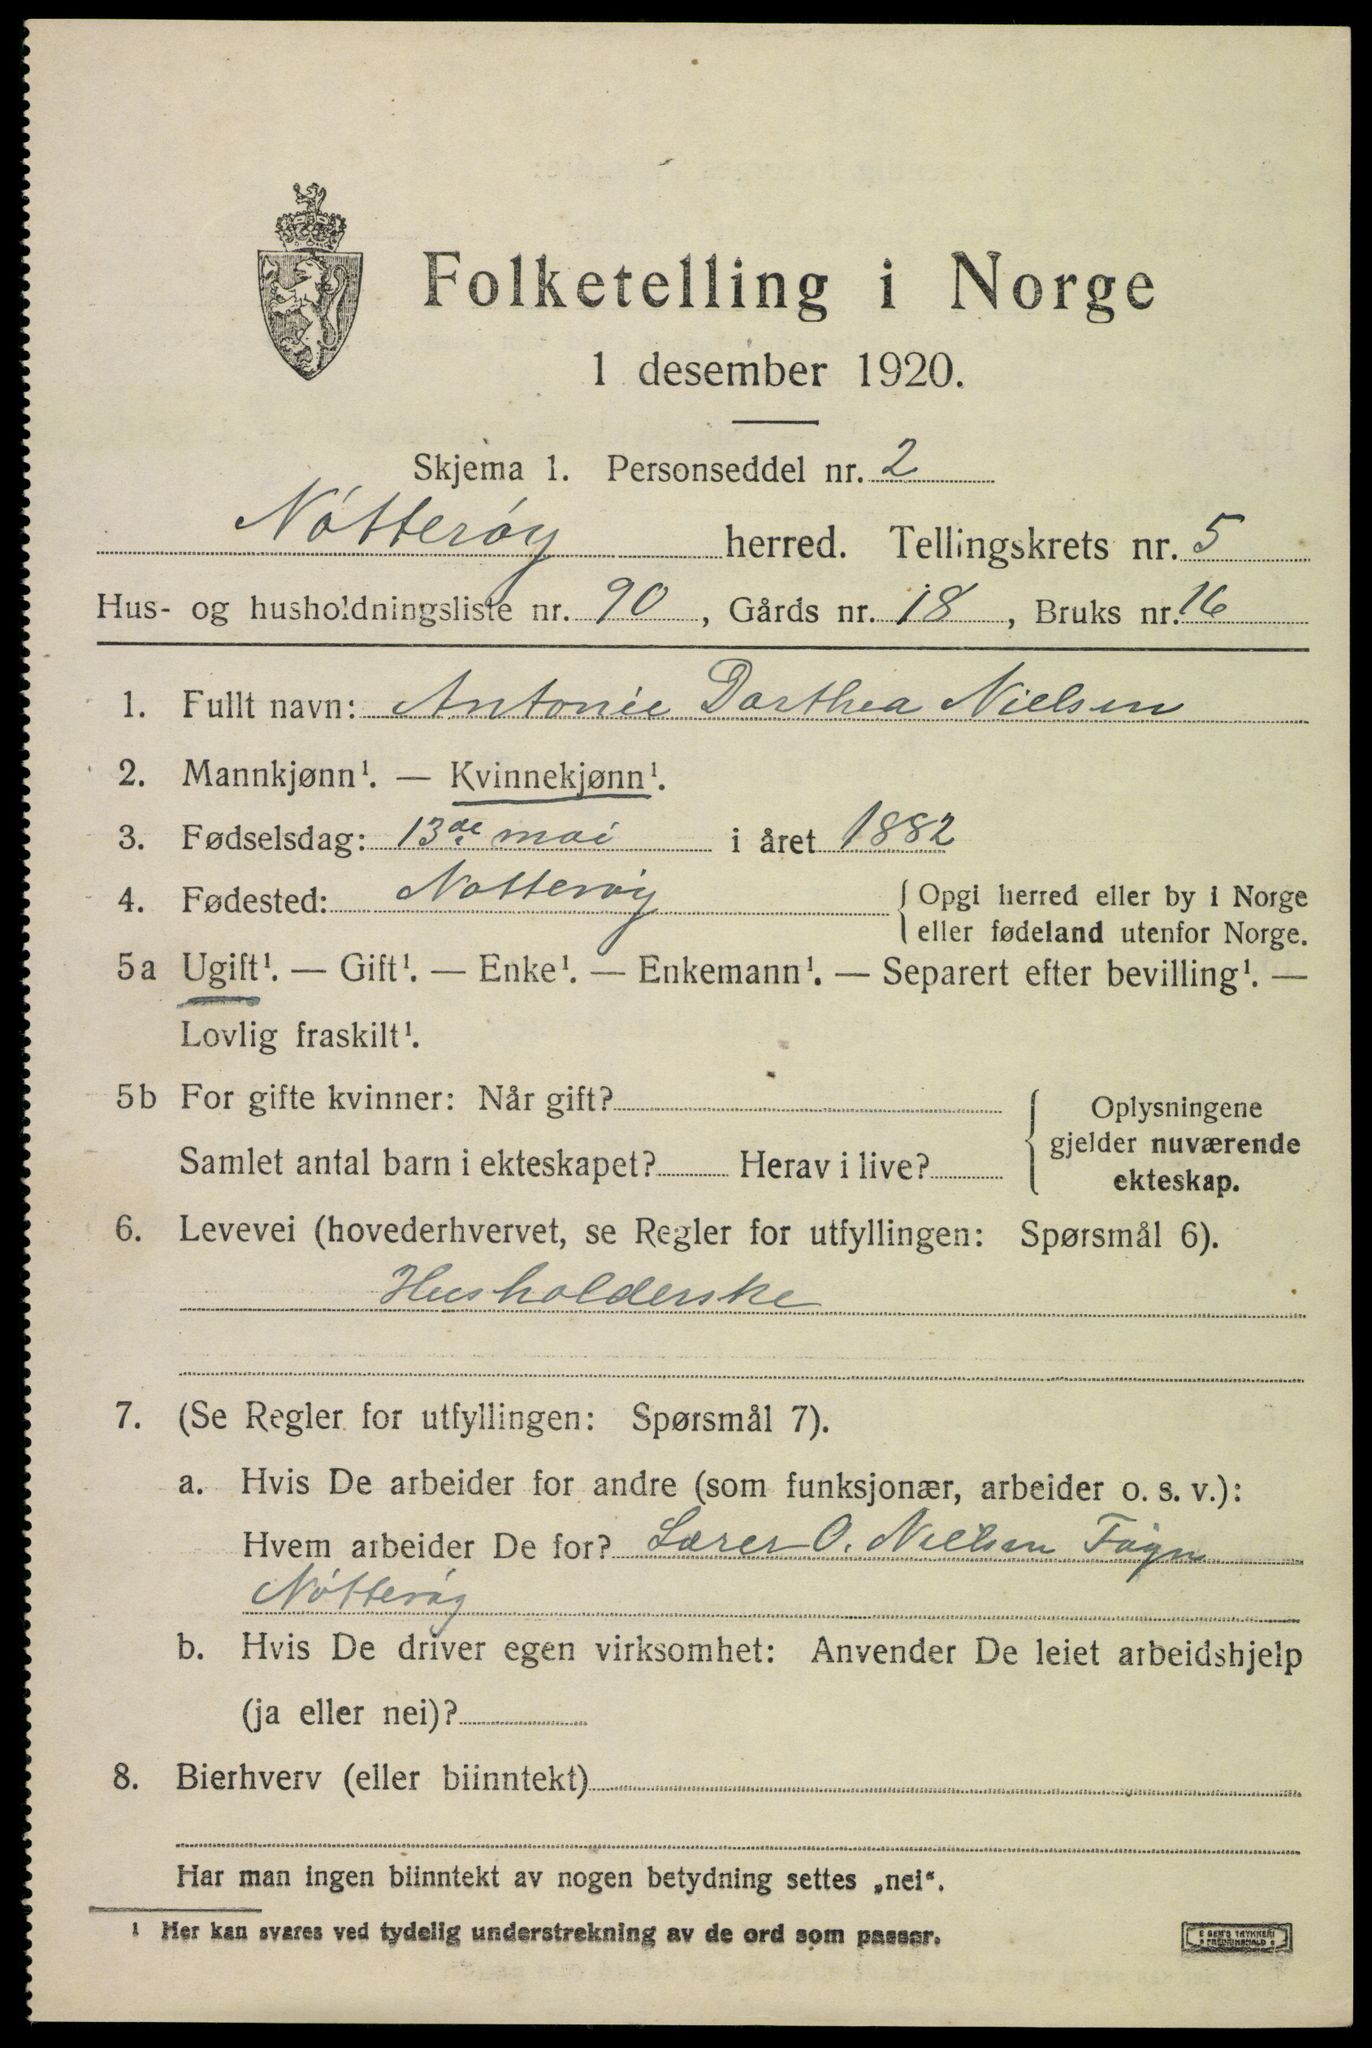 Folketelling i Norge
1 desember 1920.
Skjema 1. Personseddel nr. 2
Nótterøy herred. Tellingskrets nr. 5
Hus- og husholdningsliste nr. 90, Gårds nr. 18, Bruks nr. 16
1. Fullt navn: Antonie Dorthea Nielsen
2. Mannkjønn¹. — Kvinnekjønn¹.
3. Fødselsdag: 13de mai i året 1882
4. Fødested: Notterøy { Opgi herred eller by i Norge
eller fødeland utenfor Norge.
5a Ugift¹. — Gift¹. — Enke¹. — Enkemann¹. — Separert efter bevilling¹. —
Lovlig fraskilt¹.
5b For gifte kvinner: Når gift?
Samlet antal barn i ekteskapet? Herav i live?
Oplysningene
gjelder nuværende
ekteskap.
6. Levevei (hovederhvervet, se Regler for utfyllingen: Spørsmål 6).
Husholderske
7. (Se Regler for utfyllingen: Spørsmål 7).
a. Hvis De arbeider for andre (som funksjonær, arbeider o. s. v.):
Hvem arbeider De for? Lærer O. Nielsen
Nótterøy
b. Hvis De driver egen virksomhet: Anvender De leiet arbeidshjelp
(ja eller nei)?
8. Bierhverv (eller biinntekt)
Har man ingen biinntekt av nogen betydning settes „nei“.
¹ Her kan svares ved tydelig understrekning av de ord som passer.